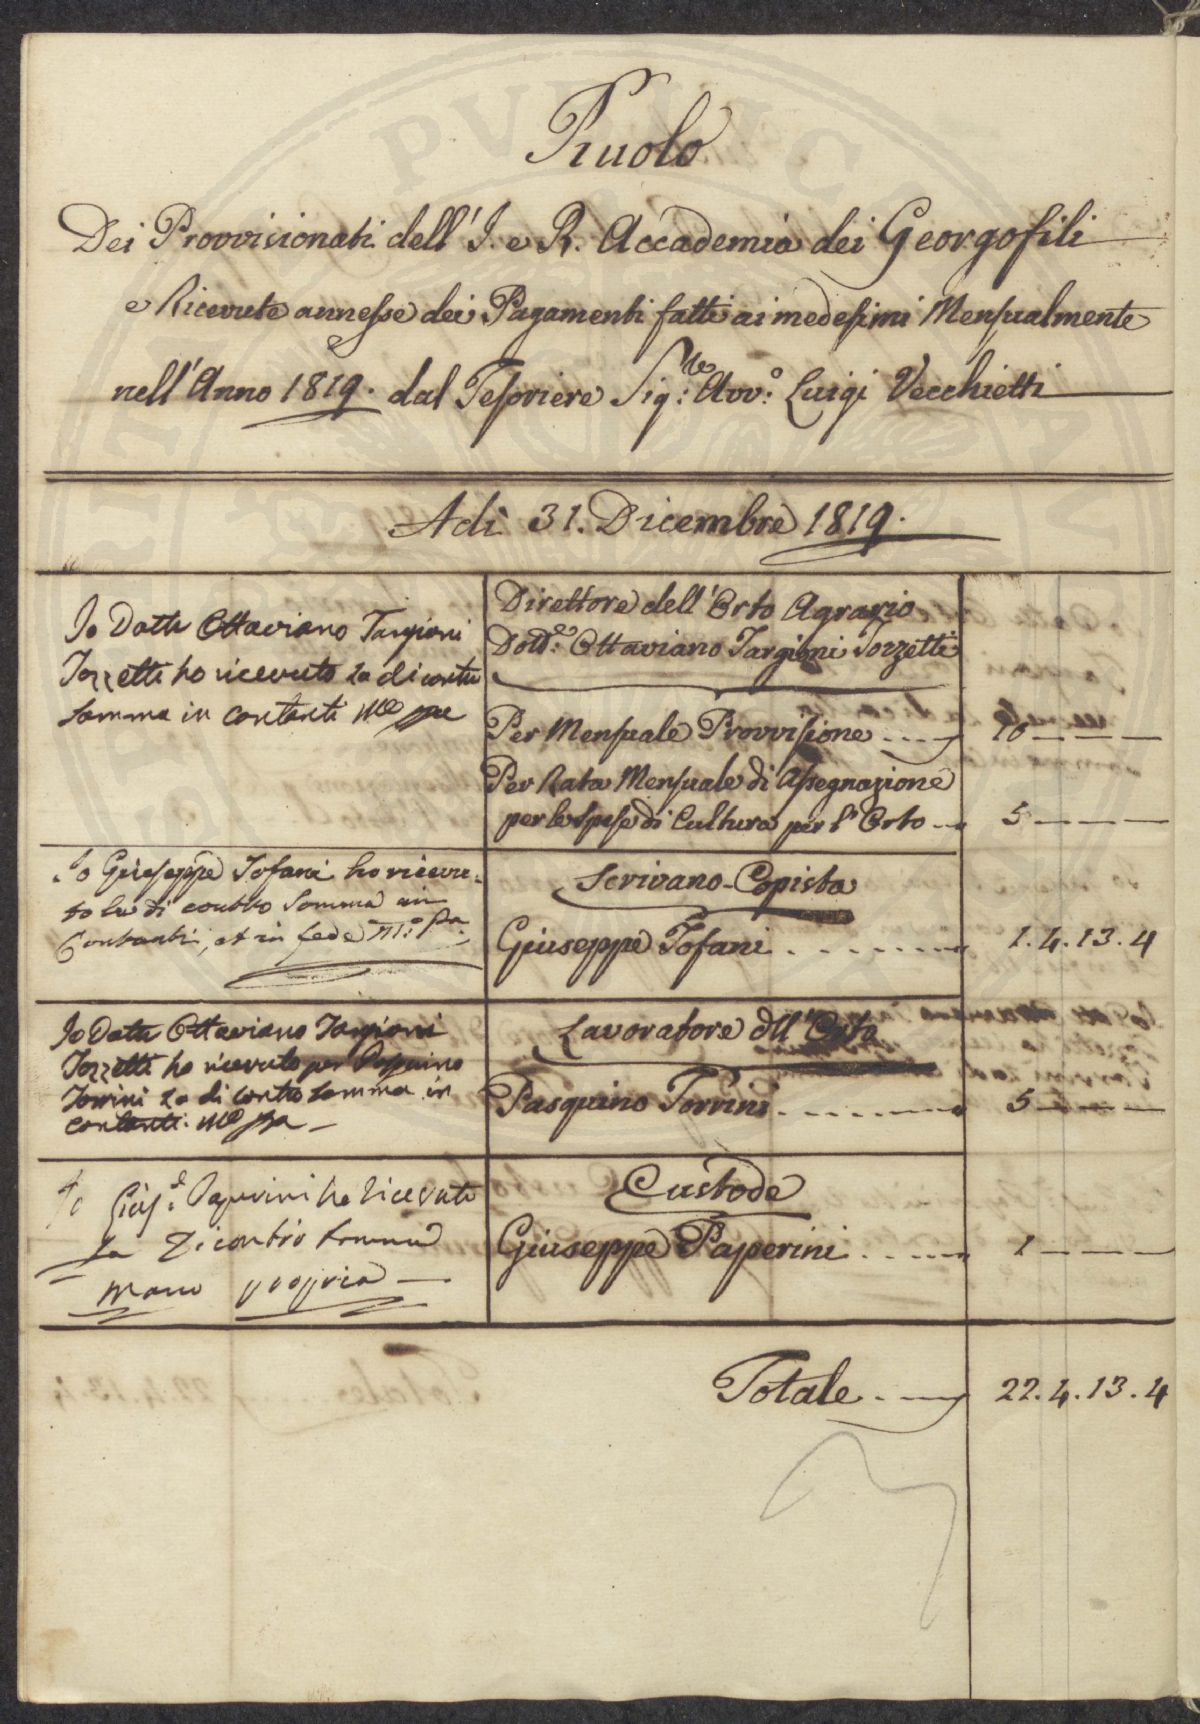 Ruolo
Dei Provvisionati dell' I. e R. Accademia dei Georgofili
e Ricevute annesse dei Pagamenti fatti ai medesimi Mensualmente
nell' Anno 1819. dal Tesoriere Sig.re Avv.o Luigi Vecchietti
Adì 31. Dicembre 1819.
Io Dotte Ottaviano Targioni
Tozzetti ho ricevuto la di contro
somma in contanti
Direttore dell' Orto Agrario
Dott.e Ottaviano Targioni Tozzetti
Per Mensuale Provvisione 10
Per Rata Mensuale di Assegnazione
per le spese di Cultura per l' Orto 5
Io Giuseppe Tofani ho ricevu-
to la di contro Somma in
Contanti, et in fede M.o P.a
Scrivano-Copista
Giuseppe Tofani 1. 4. 13. 4
Io Dotte Ottaviano Targioni
Tozzetti ho ricevuto per Pasquino
Torrini la di contro somma in
contanti.
Lavoratore dll' Orto
Pasquino Torrini 5
Io Gius.e Paperini ho ricevuto
la di contro somma
mano propria
Custode
Giuseppe Paperini 1
Totale 22. 4. 13. 4